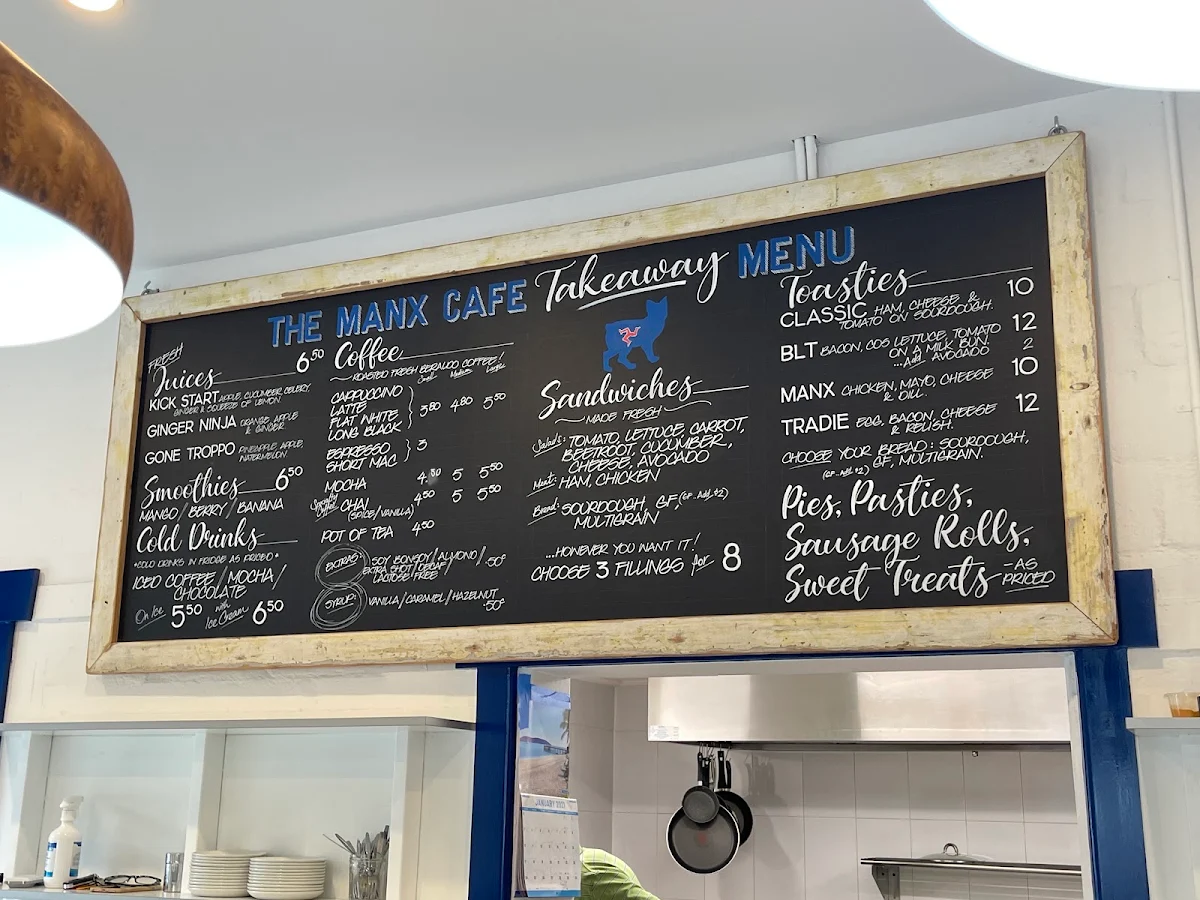 THE MANX CAFE Takeaway MENU
FRESH
Juices 6.50
KICK START APPLE, CUCUMBER, CELERY,
GINGER & SQUEEZE OF LEMON.
GINGER NINJA ORANGE, APPLE
& GINGER
GONE TROPPO PINEAPPLE, APPLE,
WATERMELON
Smoothies 6.50
MANGO / BERRY / BANANA
Cold Drinks
*COLD DRINKS IN FRIDGE AS PRICED*
ICED COFFEE / MOCHA /
CHOCOLATE
On Ice 5.50 with Ice Cream 6.50
Coffee
ROASTED FRESH BERAUDO COFFEE!
Small Medium Large
CAPPUCCINO
LATTE
FLAT WHITE 3.80 4.80 5.50
LONG BLACK
ESPRESSO
SHORT MAC 3
MOCHA 4.50 5 5.50
CHAI 4.50 5 5.50
(SPICE/VANILLA)
POT OF TEA 4.50
EXTRAS SOY BONSOY / ALMOND /
EXTRA SHOT / DECAF / .50c
LACTOSE FREE
SYRUP VANILLA / CARAMEL / HAZELNUT
.50c
Sandwiches
MADE FRESH
Salads: TOMATO, LETTUCE, CARROT,
BEETROOT, CUCUMBER,
CHEESE, AVOCADO
Meat: HAM, CHICKEN
Bread: SOURDOUGH, GF, (GF - Add $2)
MULTIGRAIN
...HOWEVER YOU WANT IT!
CHOOSE 3 FILLINGS for 8
Toasties
CLASSIC HAM, CHEESE & 10
TOMATO ON SOURDOUGH.
BLT BACON, COS LETTUCE, TOMATO 12
ON A MILK BUN.
...Add AVOCADO 2
MANX CHICKEN, MAYO, CHEESE 10
& DILL.
TRADIE EGG, BACON, CHEESE 12
& RELISH.
CHOOSE YOUR BREAD: SOURDOUGH,
(GF - Add $2) GF, MULTIGRAIN.
Pies, Pasties,
Sausage Rolls,
Sweet Treats - AS
PRICED